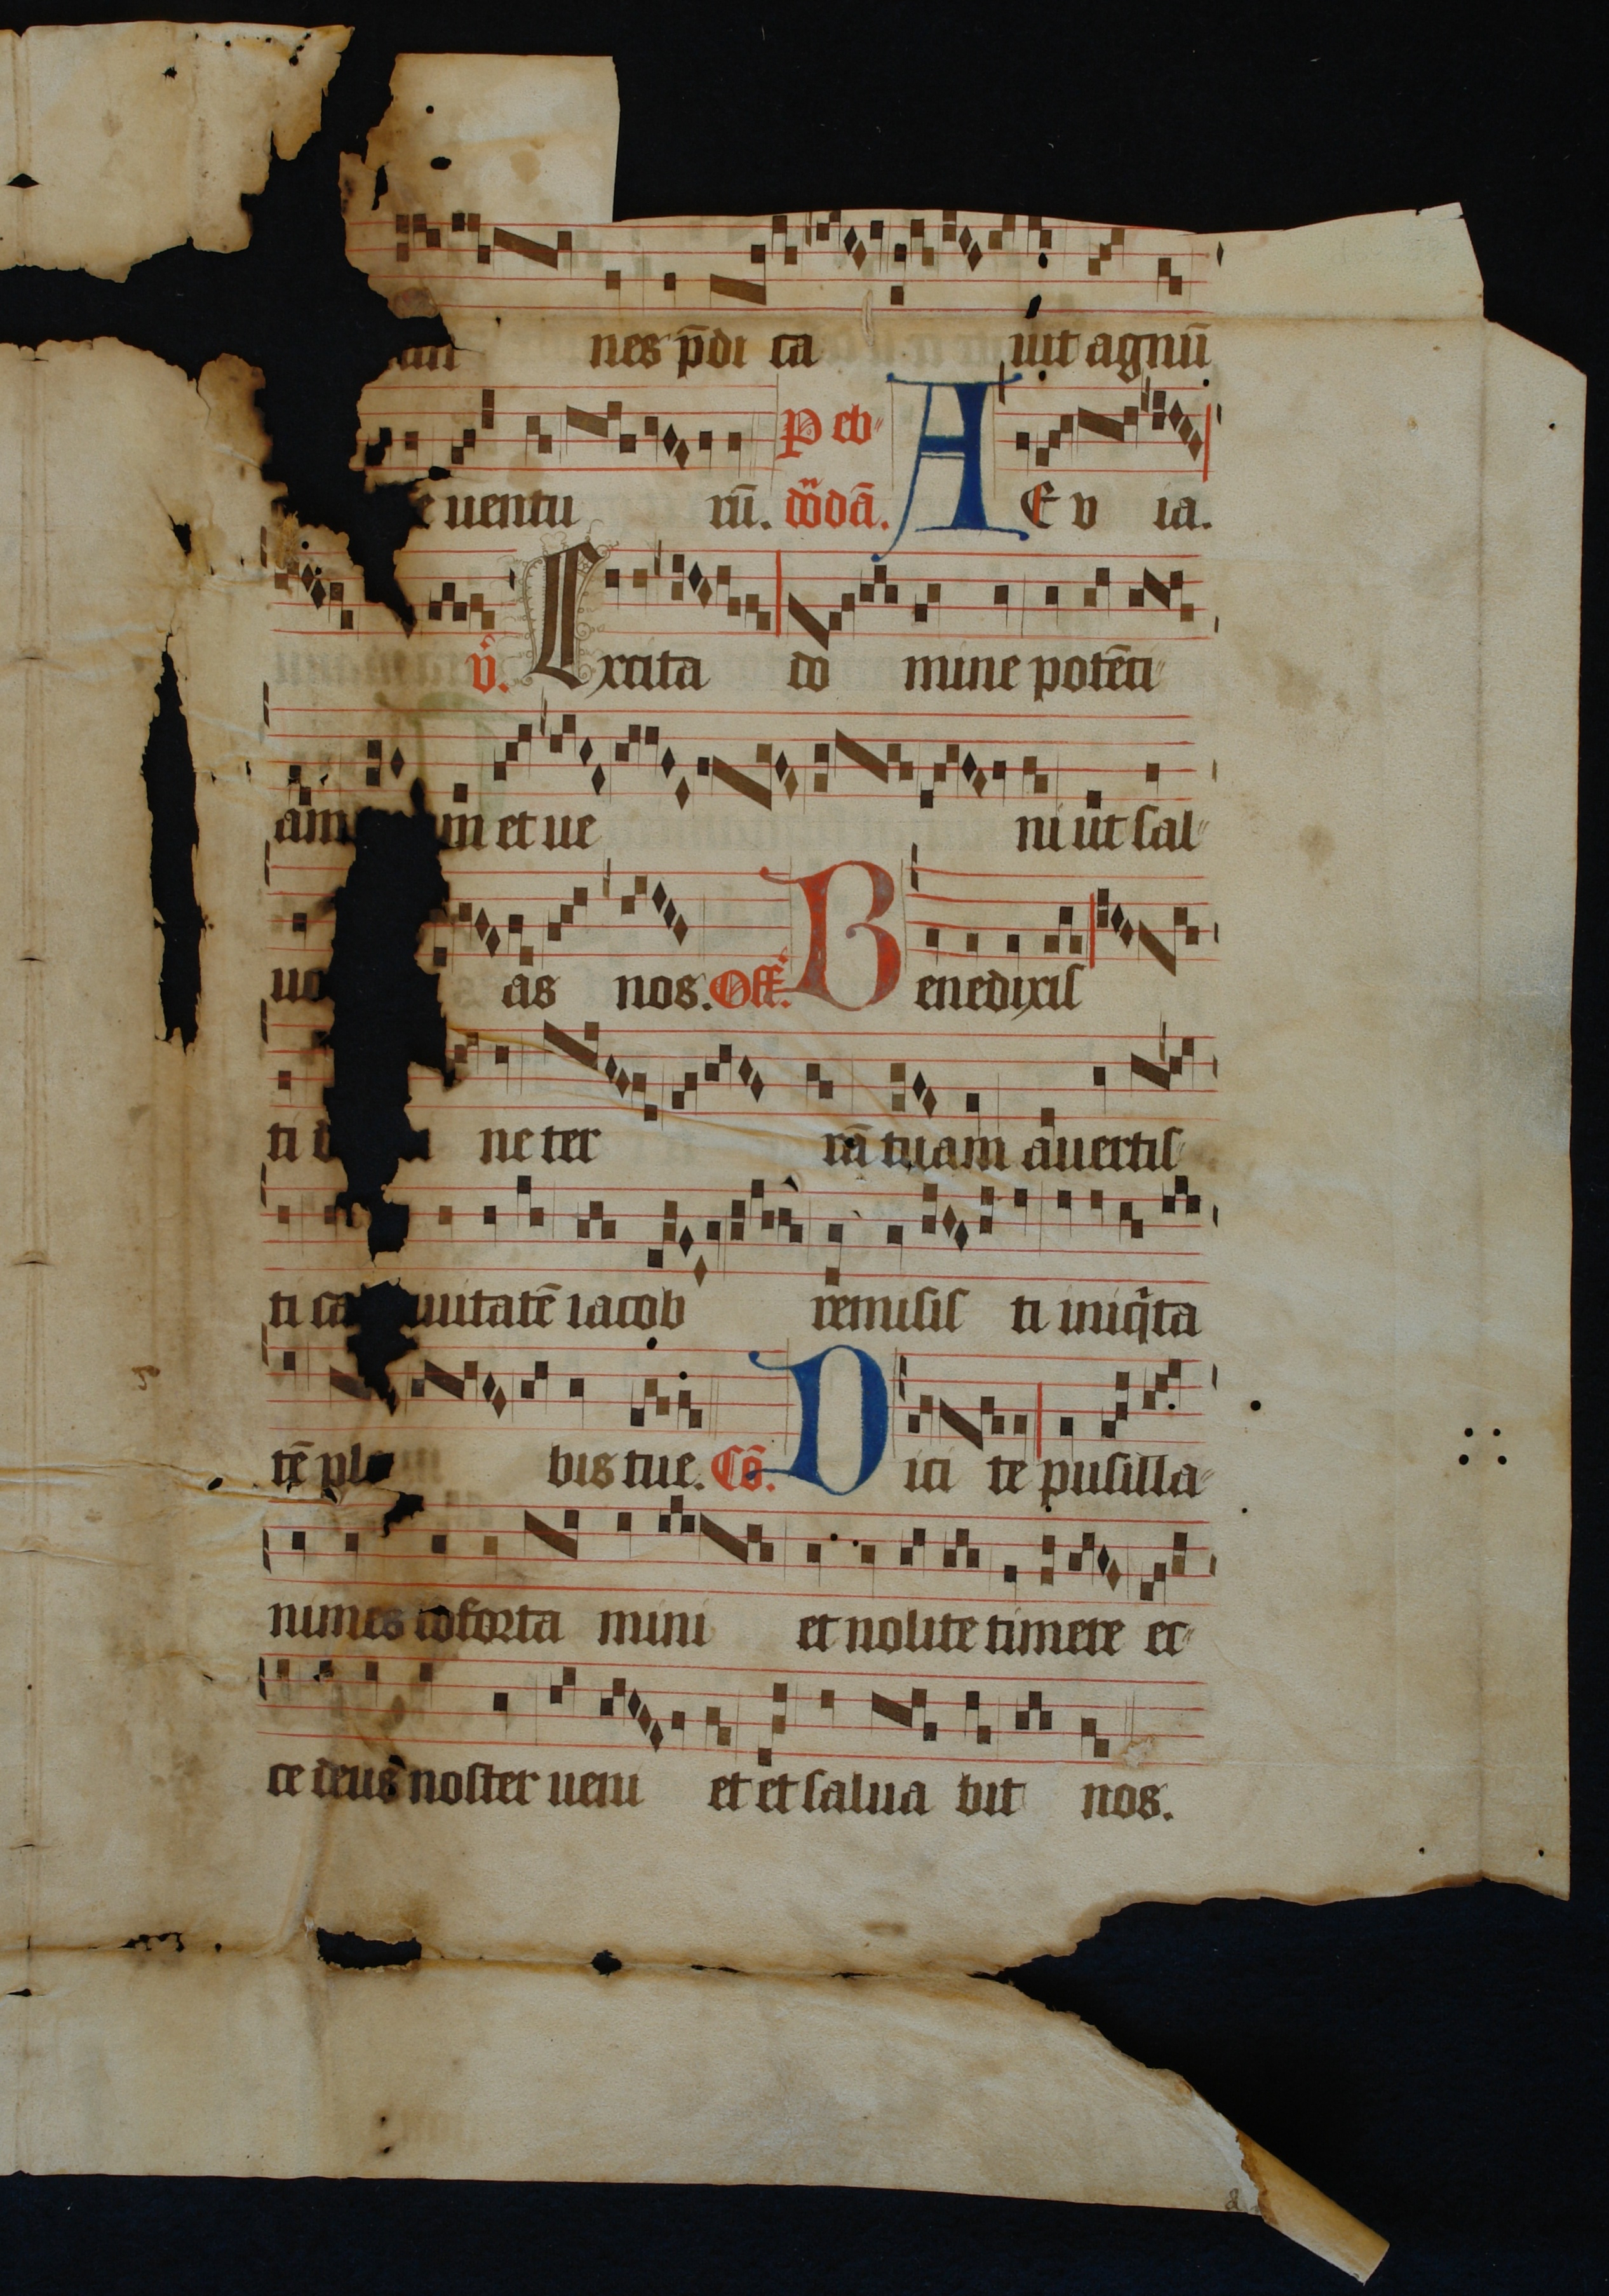 nes p̄di ca uit agnū
uentu rū. P eb d̄od̄a. A E v ia.
v̂. Excita do mine potēti
am et ue ni ut sal
uo as nos. Off. Benedixis
ti ne ter rā tuam auertis
ti ca uitatē iacob remisis ti iniq̄ta
tē ple bis tue. Cō. Dici te pusilla
nimes cōforta mini et nolite timere ec
ce deus noster ueni et et salua bit nos.